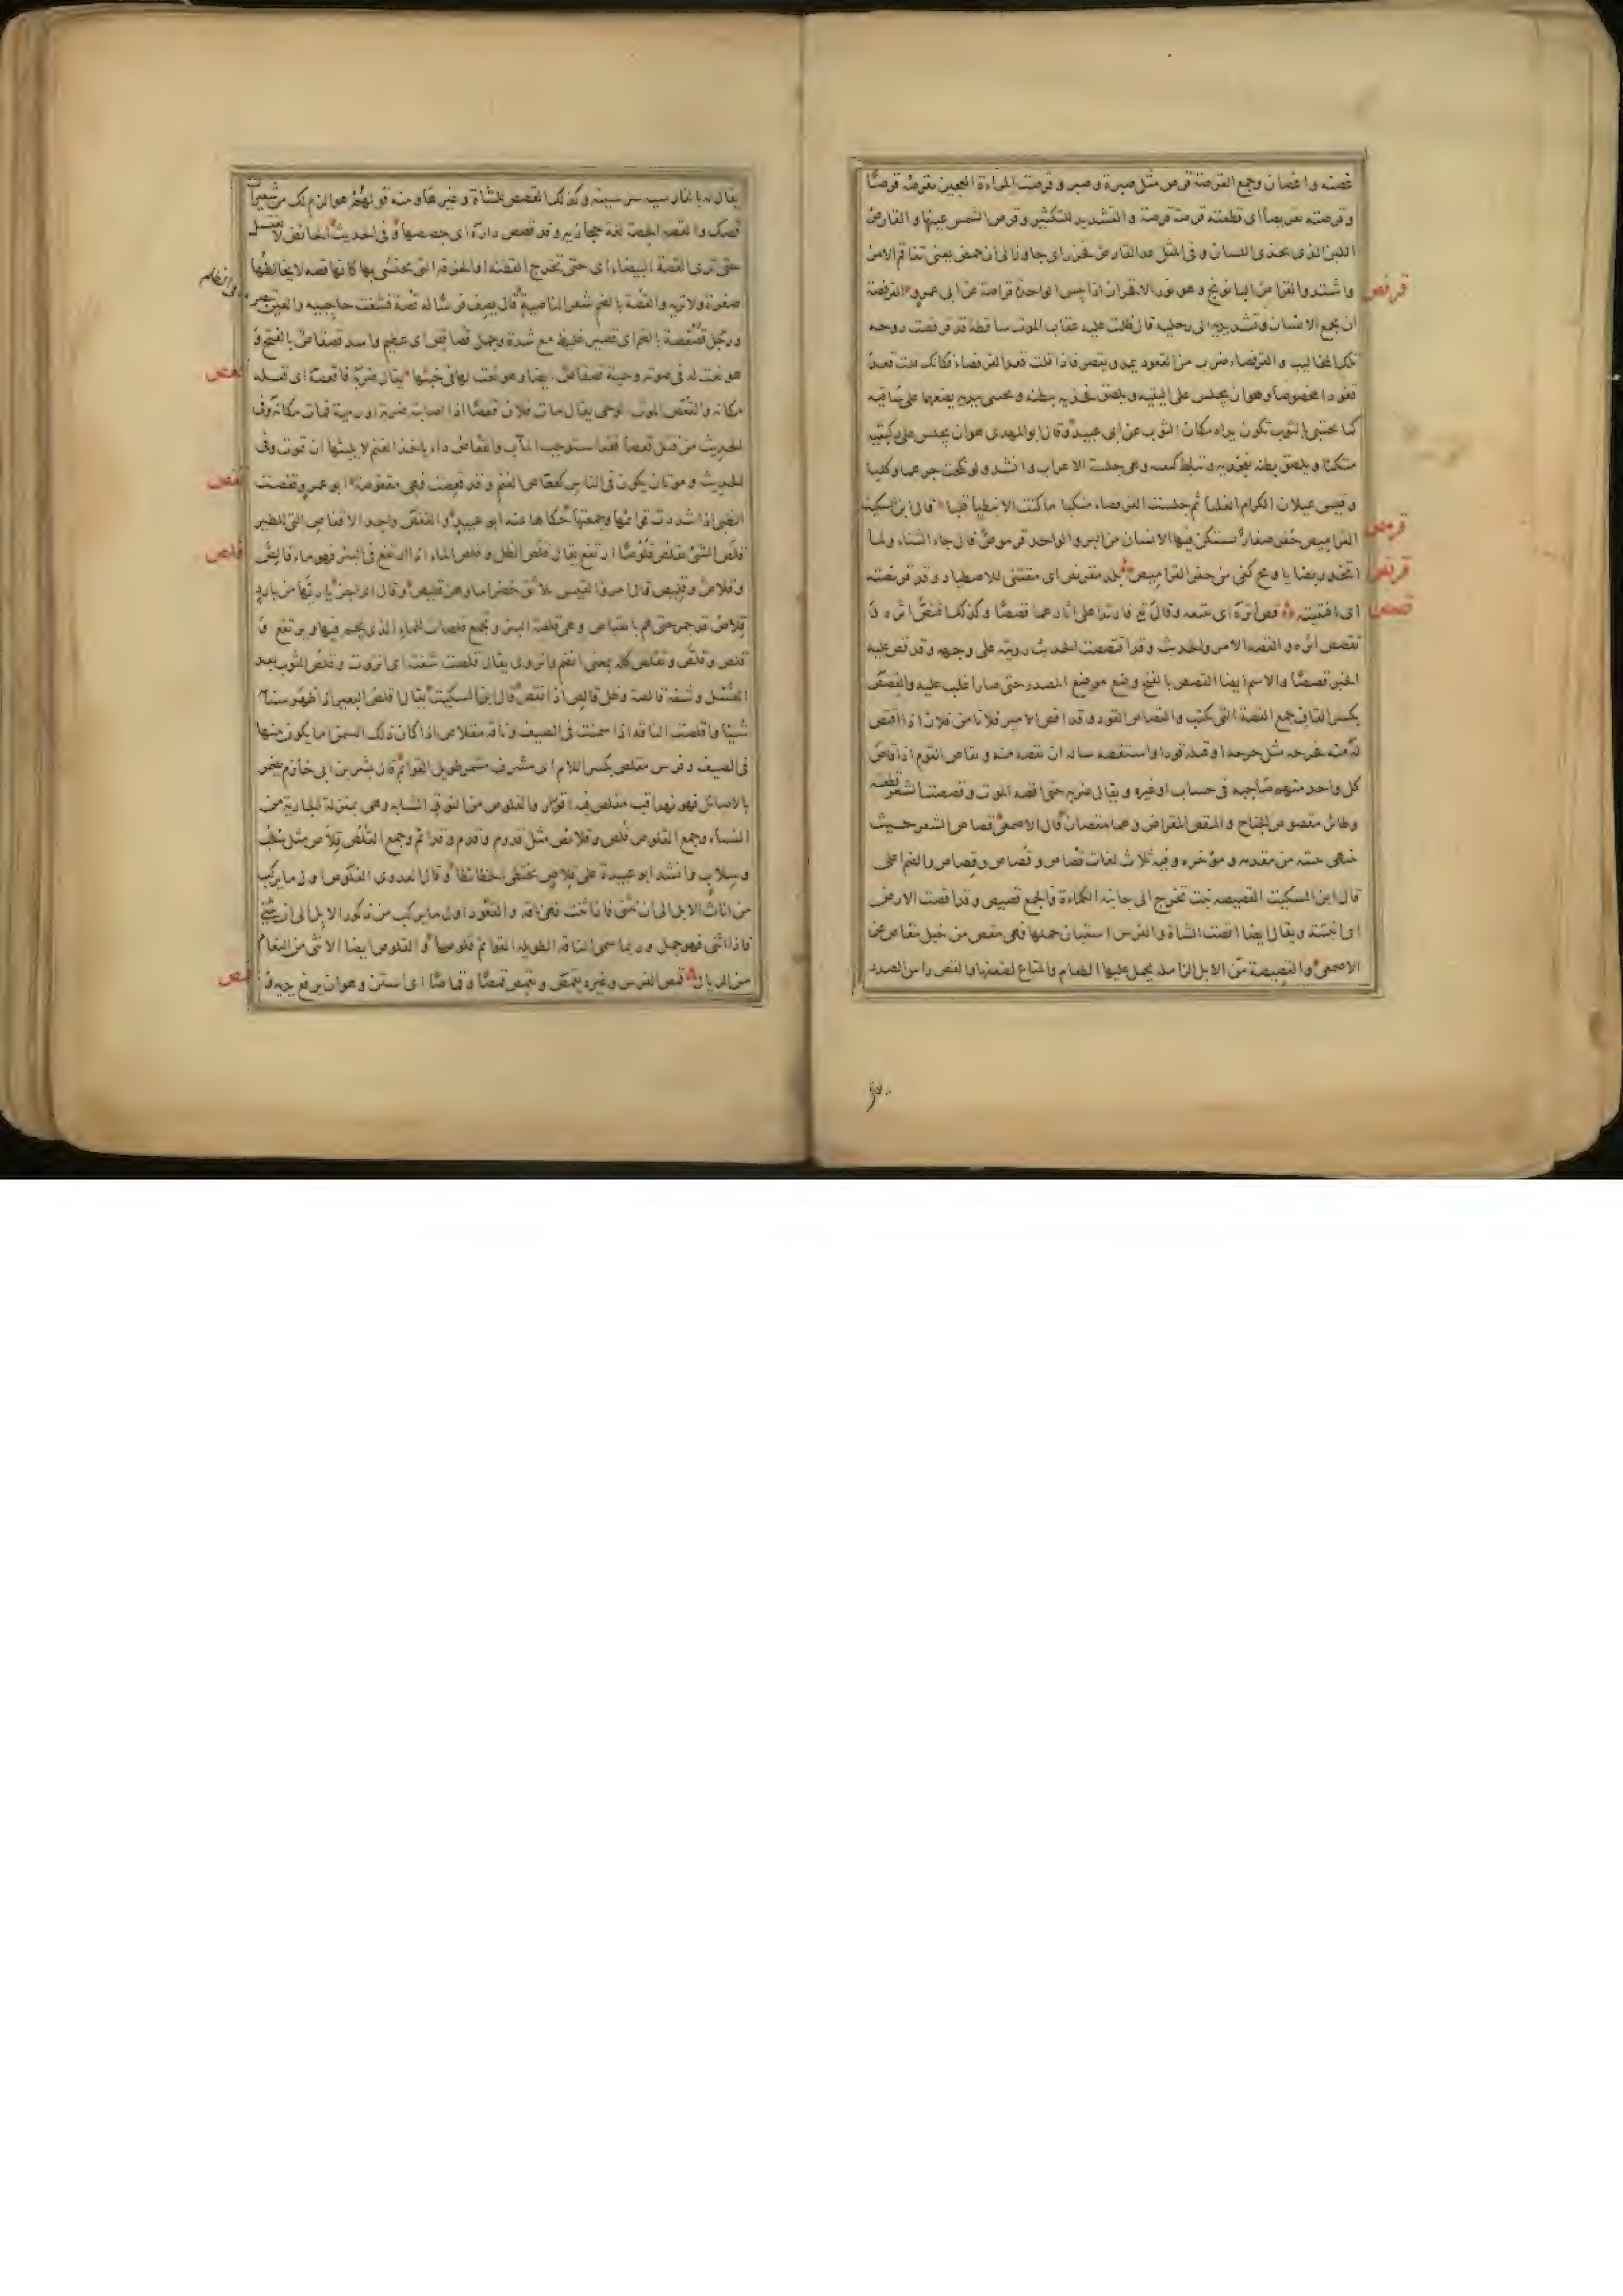 غصنه واغصان وجمع القرصة قرص مثل صبرة وصبر وقرصت المراة العجين تقرصه قرصًا
وقرصته تقريصا اى قطعته قرصة قرصة والتشديد للتكثير وقرص الشمس عينها والقارص
اللبن الذى يحذى اللسان وفى المثل عدا القارص فحزر اى جاوز الى ان حمض يعنى تفاقم الامر
واشتد والقراص البابونج وهو نور الاقحوان اذا يبس الواحدة قراصة عن ابى عمرو القرفصة
قرفص
ان يجمع الانسان وتشد يديه الى رجليه قال ظلت عليه عقاب الموت ساقطة قد قرفصت روحه
تلك المخاليب والقرفصاء ضرب من القعود يمد ويقصر فاذا قلت قعد القرفصاء فكانك قلت قعد
قعودا مخصوصا وهو ان يجلس على اليتيه ويلصق فخذيه ببطنه ويحتبى بيديه يضعهما على ساقيه
كما يحتبى بالثوب تكون يداه مكان الثوب عن ابى عبيد وقال ابو المهدى هو ان يجلس على ركبتيه
متكبا ويلصق بطنه بفخذيه ويتابط كفيه وهى جلسة الاعراب وانشد ولو نكحت جرهما وكلبا
وقيس عيلان الكرام الغلبا ثم جلست القرفصا منكبا ما كنت الا نبطيا قلبا قال ابن السكيت
القراميص حفر صغار يستكن فيها الانسان من البرد الواحد قرموص قال جاء الشتاء ولما
قرمص
اتخذ ربضا يا ويح كفى من حفر القراميص بلد مقرنص اى مقتنى للاصطياد وقد قرنصته
قرنص
اى اقتنيته قص اثره اى تتبعه وقال تع فارتدا على اثارهما قصصا وكذلك اقتص اثره و
قصص
تقصص اثره والقصة الامر والحديث وقد اقتصصت الحديث رويته على وجهه وقد قص عليه
الخبر قصصًا والاسم ايضا القصص بالفتح وضع موضع المصدر حتى صار اغلب عليه والقصص
بكسر القاف جمع القصة التى تكتب والقصاص القود وقد اقص الامير فلانا من فلان اذا اقتص
له منه فجرحه مثل جرحه او قتله قودا واستقصه ساله ان يقصه منه وتقاص القوم اذا قاص
كل واحد منهم صاحبه فى حساب او غيره ويقال ضربه حتى اقصه الموت وقصصت الشعر قطعته
وطائر مقصوص الجناح والمقص المقراض وهما مقصان قال الاصمعى قصاص الشعر حيث
تنتهى نبتته من مقدمه ومؤخره وفيه ثلاث لغات قُصاص وقَصاص وقِصاص والضم اعلى
قال ابن السكيت القصيصة نبت تخرج الى جانبه الكماءة والجمع قصيص وقد اقصت الارض
اى انبتته ويقال ايضا اقصت الشاة والفرس استبان حملها فهى مقص من خيل مقاص عن
الاصمعى والقصيصة من الابل الزاملة يحمل عليها الطعام والمتاع لضعفها والقص راس الصدر
يقال له بالفارسية سرسينه وكذلك القصص للشاة وغيرها ومنه قولهم هو الزم لك من شعيرات
قصك والقصة الجصة لغة حجازية وقد قصص داره اى جصصها وفى الحديث الحائض لا تغتسل
حتى ترى القصة البيضاء اى حتى تخرج القطنة او الخرقة التى تحتشى بها كانها قصة لا يخالطها
صفرة ولا ترية والقصة بالضم شعر الناصية قال يصف فرسًا له قصة فشغت حاجبيه والعين تبصر
ما فى الظلم
ورجل قصقصة بالضم اى قصير غليظ مع شدة وجمل قصاقص اى عظيم واسد قصقاص بالفتح و
هو نعت له فى صوته وحية قصقاص ايضا وهو نعت لها فى خبثها يقال ضربه فاقعصه اى قتله
قعص
مكانه والقعص الموت الوحى يقال مات فلان قعصا اذا اصابته ضربة او رمية فمات مكانه وفى
الحديث من قتل قعصا فقد استوجب المآب والقعاص داء ياخذ الغنم لا يلبثها ان تموت وفى
الحديث وموتان يكون فى الناس كقعاص الغنم وقد قعصت فهى مقعوصة ابو عمرو قفصت
قفص
الظبى اذا شددت قوائمها وجمعتها حكاها عنه ابو عبيد والقفص واحد الاقفاص التى للطير
قلص الشئ يقلص قلوصًا ارتفع يقال قلص الظل وقلص الماء اذا ارتفع فى البئر فهو ماء قالص
قلص
وقلاص وقليص قال امرؤ القيس بلائق خضرا ماؤهن قليص وقال الراجز يا ريها من بارد
قلاص قد جم حتى هم بانقياص وهى قلصة البئر وتجمع قلصات للماء الذى يجم فيها ويرتفع و
قلص وقلص وتقلص كله بمعنى انضم وانزوى يقال قلصت شفته اى انزوت وقلص الثوب بعد
الغسل وشفة قالصة وظل قالص اذا نقص قال ابن السكيت يقال اقلص البعير اذا ظهر سنامه
شيئا واقلصت الناقة اذا سمنت فى الصيف وناقة مقلاص اذا كان ذلك السمن ما يكون منها
فى الصيف وفرس مقلص بكسر اللام اى مشرف مشمر طويل القوائم قال بشر بن ابى خازم يضمر
بالاصائل فهو نهد اقب مقلص فيه اقورار والقلوص من النوق الشابة وهى بمنزلة الجارية من
النساء وجمع القلوص قلص وقلائص مثل قدوم وقدم وقدائم وجمع القلص قلاص مثل سلب
وسلاب وانشد ابو عبيدة على قلاص تختطى الخطائطا وقال العدوى القلوص اول ما يركب
من اناث الابل الى ان تثنى فاذا اثنت فهى ناقة والقعود اول ما يركب من ذكور الابل الى ان يثنى
فاذا اثنى فهو جمل وربما سمى الناقة الطويلة القوائم قلوصا والقلوص ايضا الانثى من النعام
من الريال قمص الفرس وغيره يقمص ويقمص قمصًا وقماصًا اى استن وهو ان يرفع يديه و
قمص